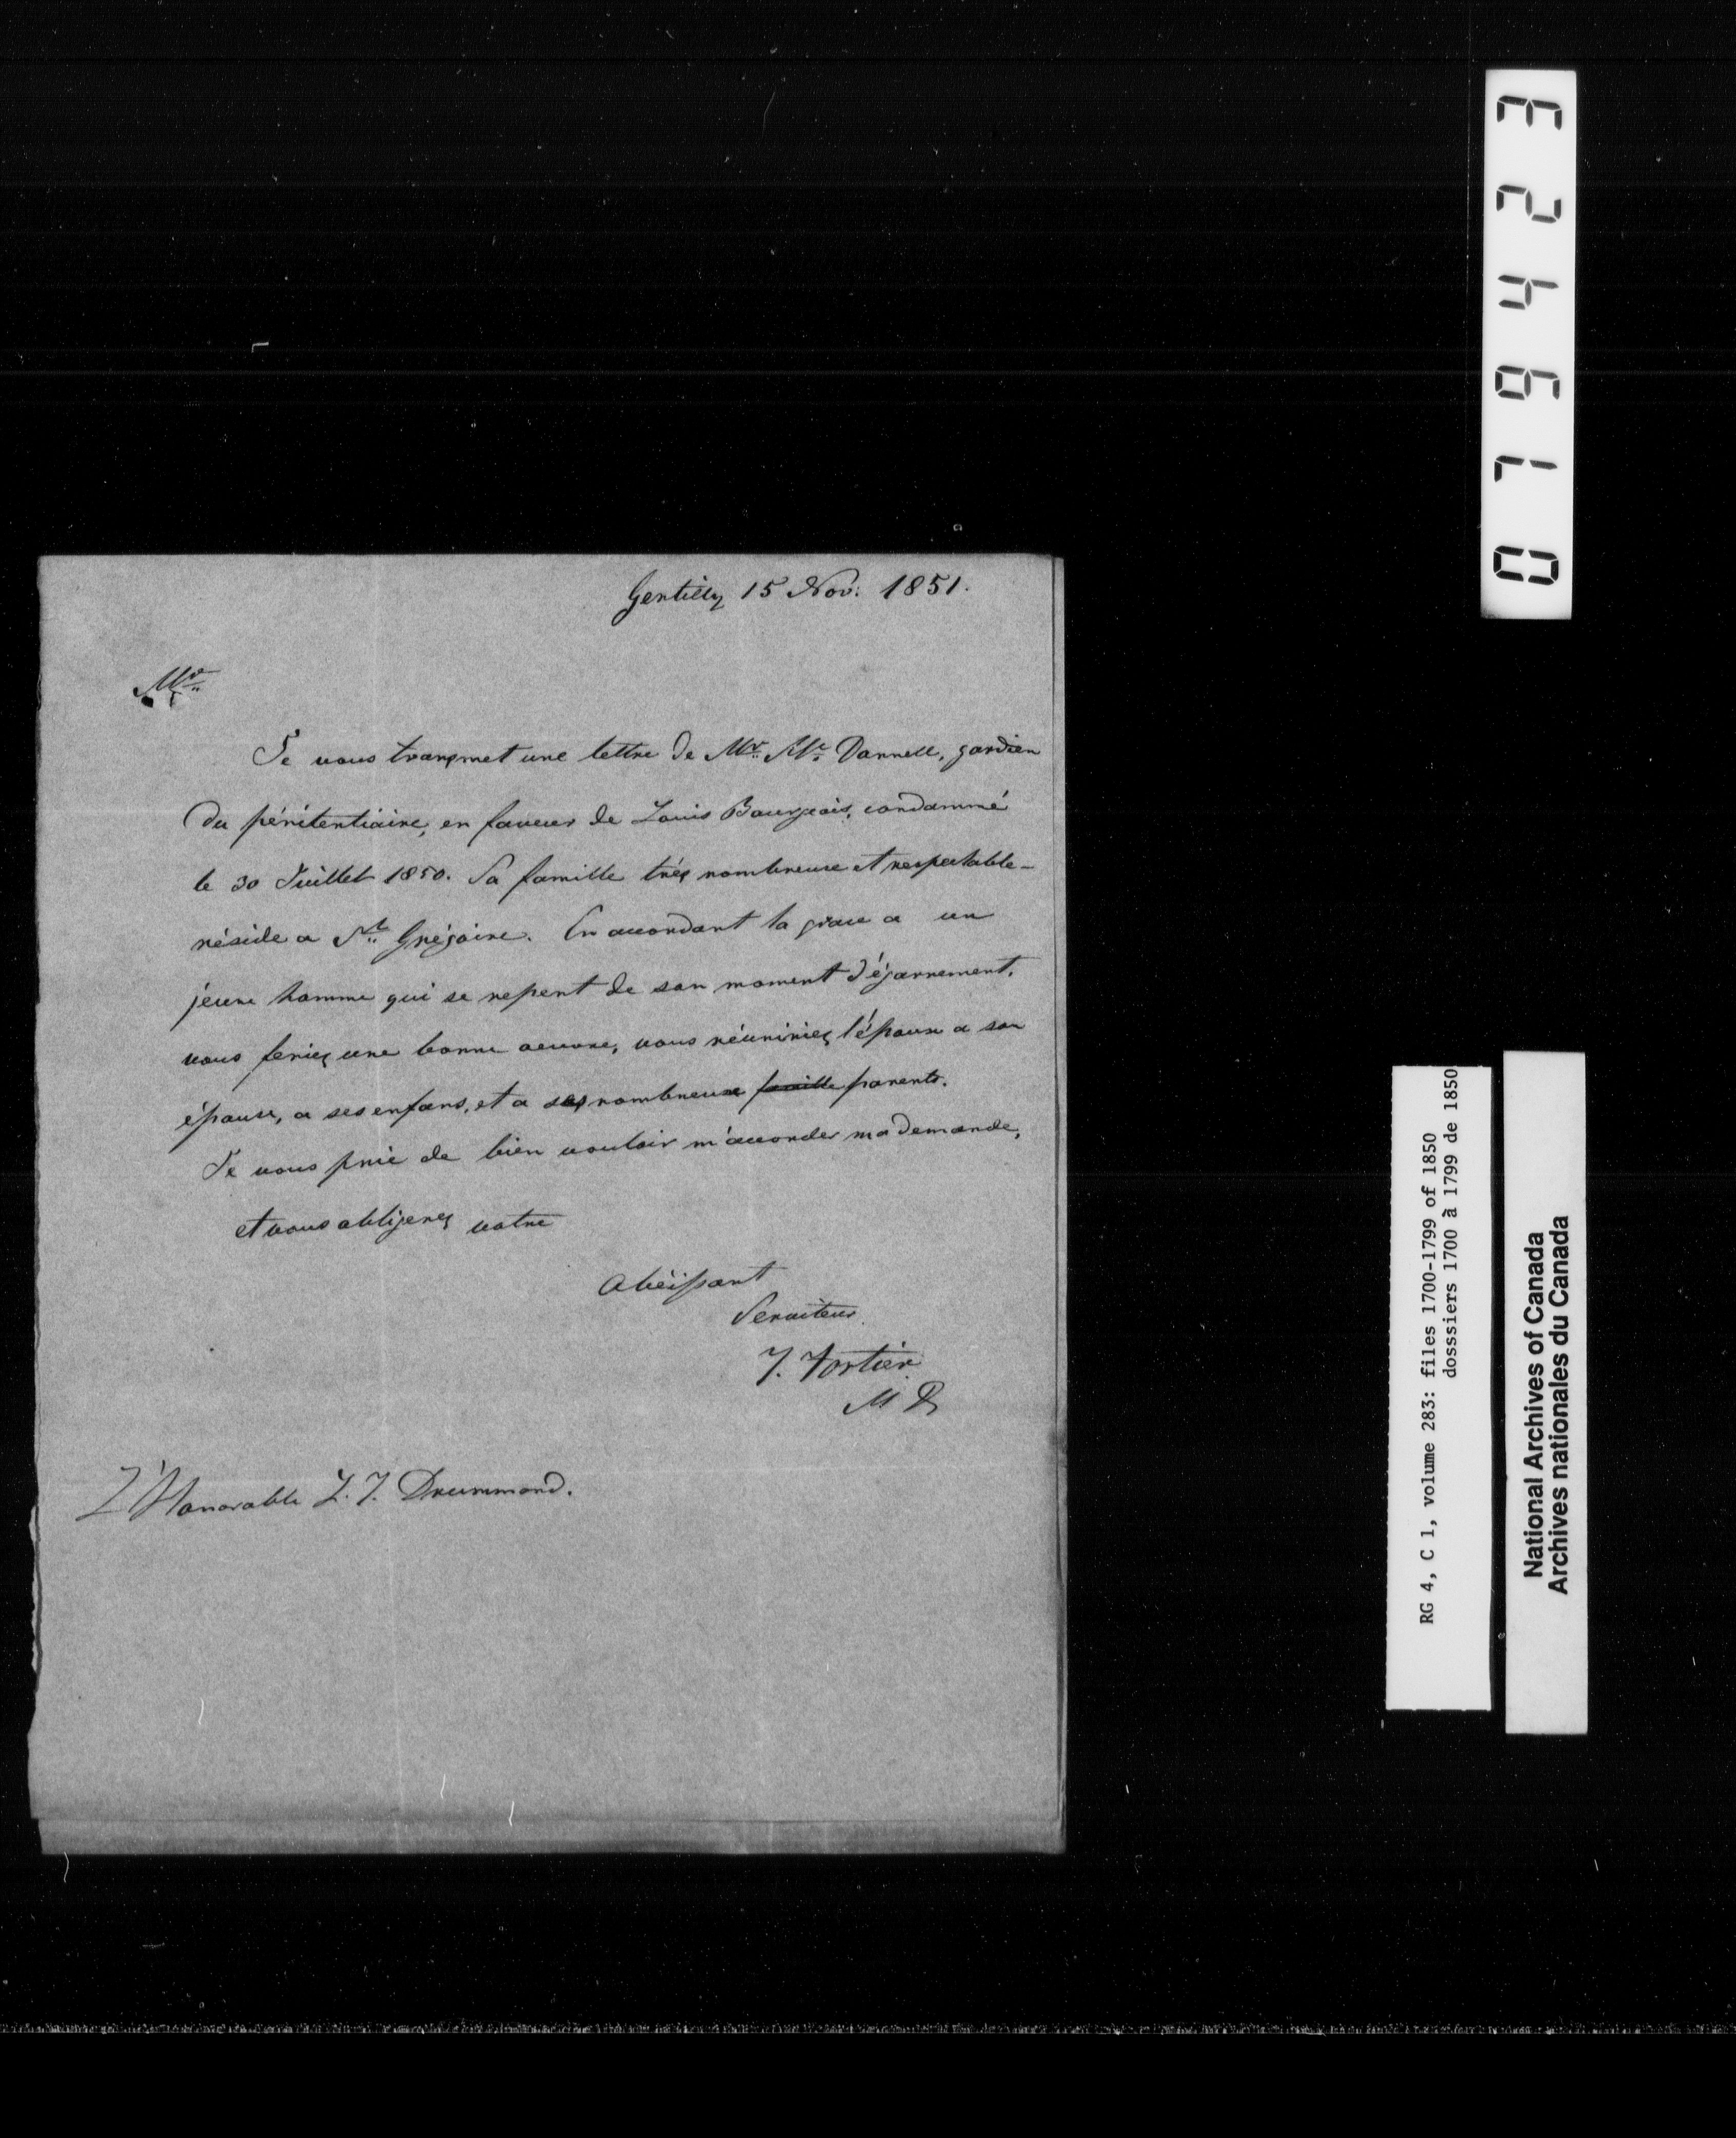 Gentilly 15 Nov: 1851.
Mr
Je vous transmet une lettre de Mr. Mc. Donnell, gardien
du pénitentiaire, en faveur de Louis Bourgeois, condammé
le 30 Juillet 1850. Sa famille très nombreuse et respectable
réside a St. Grégoire. En accordant la grace a un
jeune homme qui se repent de son moment d'égarrement,
vous feriez une bonne oeuvre, vous réuniriez l'époux a son
épouse, a ses enfans, et a ses nombreux famille parents.
Je vous prie de bien vouloir m'accorder ma demande,
et vous obligerez votre
Obéissant
Serviteur.
T. Fortier
M P
L'Honorable L. T. Drummond.
079423
RG 4, C 1, volume 283: files 1700-1799 of 1850
dosssiers 1700 à 1799 de 1850
National Archives of Canada
Archives nationales du Canada